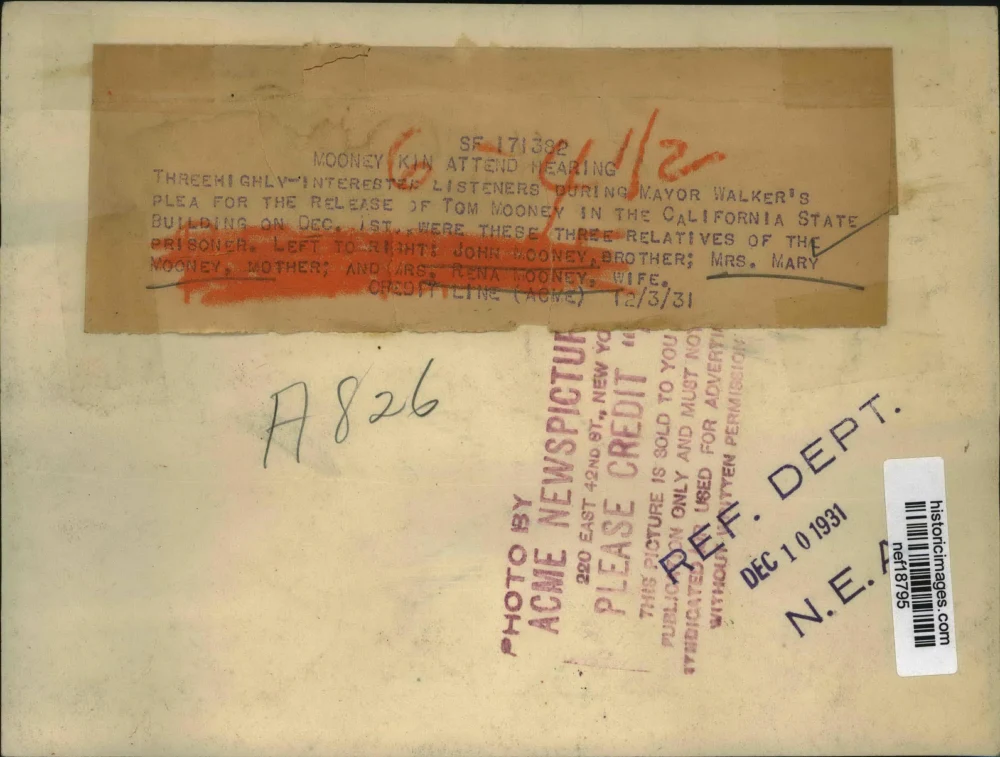 SF 171382
MOONEY KIN ATTEND HEARING
THREEHIGHLY-INTERESTED LISTENERS DURING MAYOR WALKER'S
PLEA FOR THE RELEASE OF TOM MOONEY IN THE CALIFORNIA STATE
BUILDING ON DEC. 1ST., WERE THESE THREE RELATIVES OF THE
PRISONER. LEFT TO RIGHT: JOHN MOONEY, BROTHER; MRS. MARY
MOONEY, MOTHER; AND MRS. RENA MOONEY, WIFE.
CREDIT LINE (ACME) 12/3/31
A826
PHOTO BY
ACME NEWSPICTUR
220 EAST 42ND ST., NEW YO
PLEASE CREDIT "
THIS PICTURE IS SOLD TO YOU
PUBLICATION ONLY AND MUST NOT
SYNDICATED OR USED FOR ADVERTI
WITHOUT WRITTEN PERMISSION
REF. DEPT.
DEC 10 1931
N. E. A
historicimages.com
nef18795